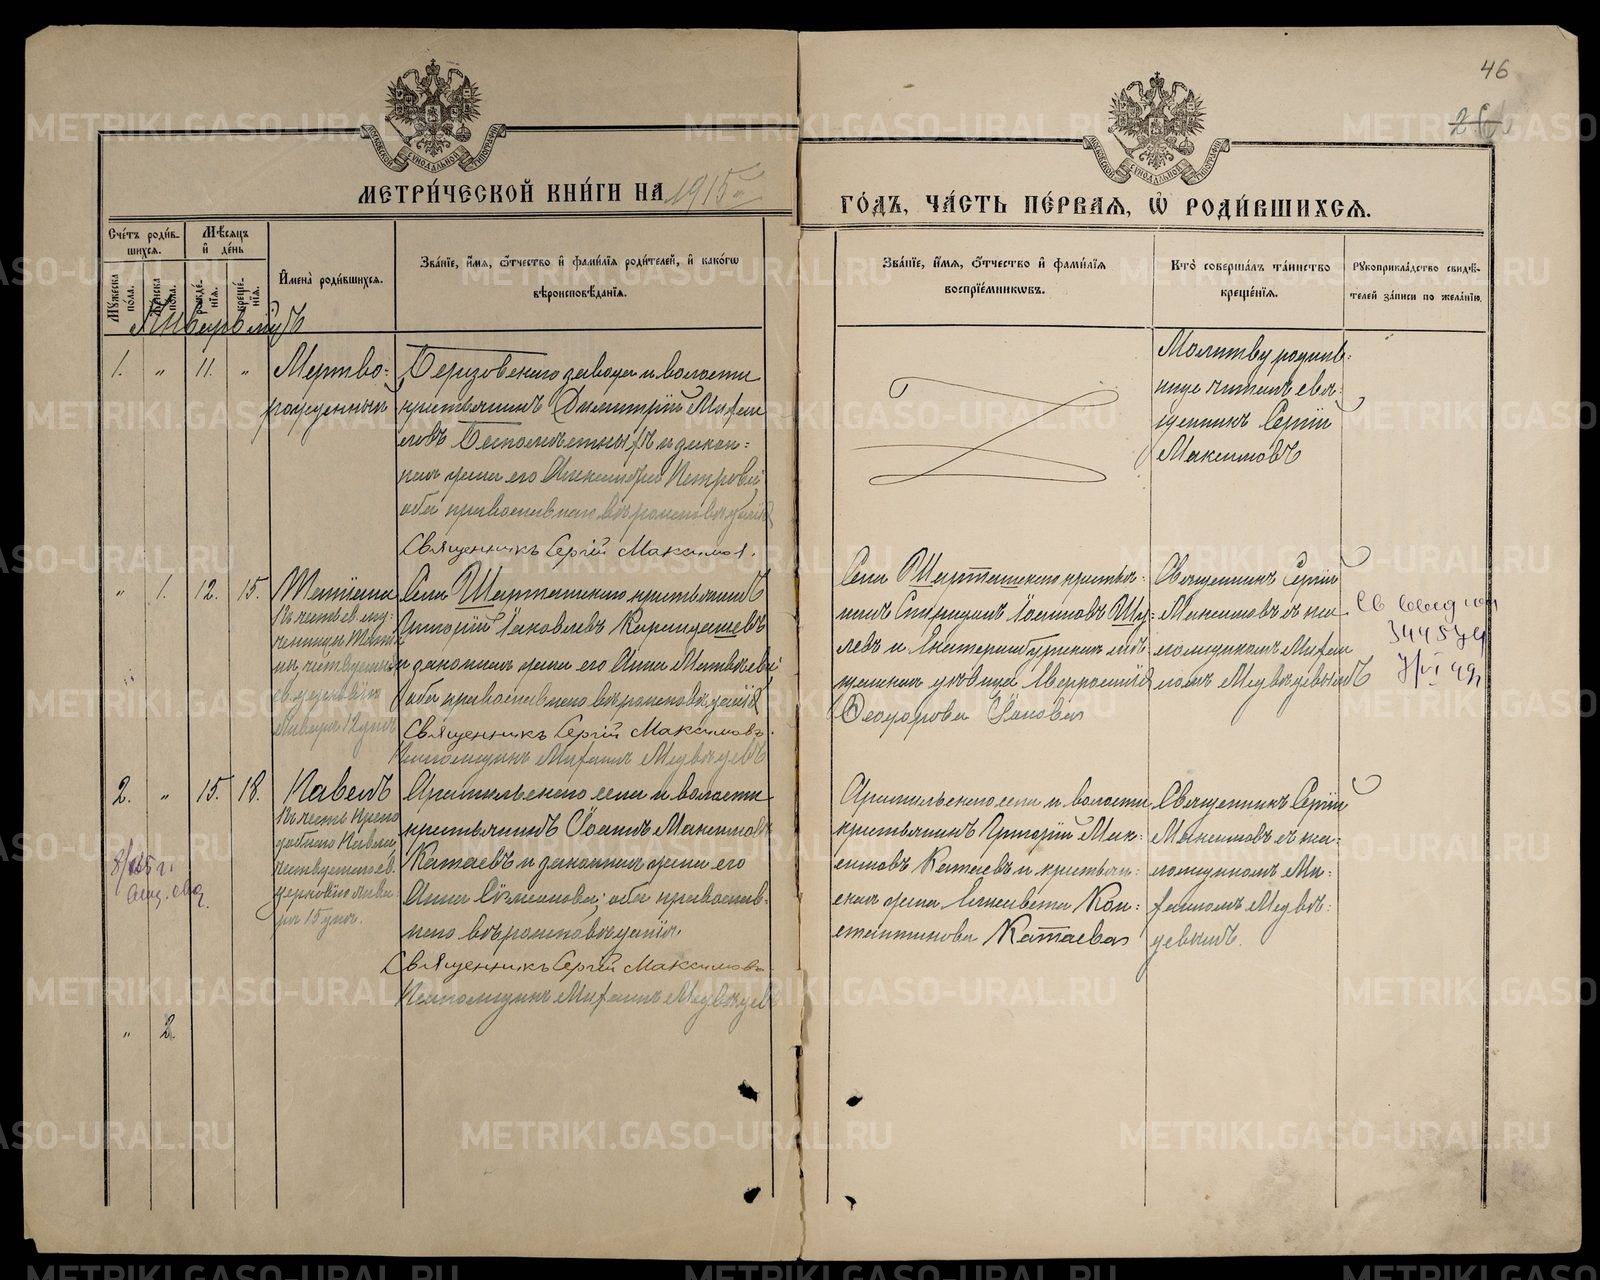 46
МЕТРИ́ЧЕСКОЙ КНИ́ГИ НА 1915
ГО́ДЪ, ЧА́СТЬ ПЕ́РВАЯ, Ѡ҆ РОДИ́ВШИХСЯ.
Сче́тъ роди́в-
шихся.
Мѣ́сяцъ
и҆ де́нь
Мꙋ́жеска по́ла.
Же́нска по́ла.
рожде́-
нія.
креще́-
нія.
И҆мена̀ роди́вшихся.
Зва́ніе, и҆́мя, ѻ҆́тчество и҆ фами́лія роди́телей, и҆ како́гѡ
вѣроисповѣ́данія.
Зва́ніе, и҆́мя, ѻ҆́тчество и҆ фами́лія
воспріе́мниковъ.
Кто̀ соверша́лъ та́инство
креще́нія.
Рꙋкоприкла́дство свидѣ́-
телей за́писи по жела́нію.
Январь
1. " 11. "
Мертво-
рожденный
Березовскаго завода и волости
крестьянинъ Димитрій Михаи
ловъ и закон-
ная жена его Александра Петрова
оба православнаго вѣроисповѣданія
Священникъ Сергій Максимов.
Молитву родиль-
ницѣ читалъ свя-
щенникъ Сергій
Максимовъ
" 1. 12. 15.
Татіана
Въ честь св. му-
ченицы Тати
ны, чествуемой
св. церковію
Января 12 дня
Села Шарташскаго крестьянинъ
Григорій Іаковлевъ Карандашевъ
и законная жена его Анна Матвѣева
оба православнаго вѣроисповѣданія
Священникъ Сергій Максимовъ.
Псаломщикъ Михаилъ Медвѣдевъ
Села Шарташскаго крестья-
нинъ Спиридонъ Іоанновъ
и Екатеринбургская мѣ-
щанская дѣвица
Ѳеодорова
Священникъ Сергій
Максимовъ съ пса-
ломщикомъ Михаи
ломъ Медвѣдевымъ
2. " 15. 18.
Павелъ
Въ честь Препо
добнаго Павла,
чествуемаго св.
церковію янва-
ря 15 дня.
Арамильскаго села и волости
крестьянинъ Іоаннъ Максимовъ
Катаевъ и законная жена его
Анна Симеонова; оба православ-
наго вѣроисповѣданія.
Священникъ Сергій Максимовъ
Псаломщикъ Михаилъ Медвѣдевъ
Арамильскаго села и волости
крестьянинъ Григорій Мак-
симовъ Катаевъ и крестьян-
ская жена Елисавета Кон-
стантинова Катаева
Священникъ Сергій
Максимовъ съ пса-
ломщикомъ Ми-
хаиломъ Медвѣ-
девымъ.
" 2.